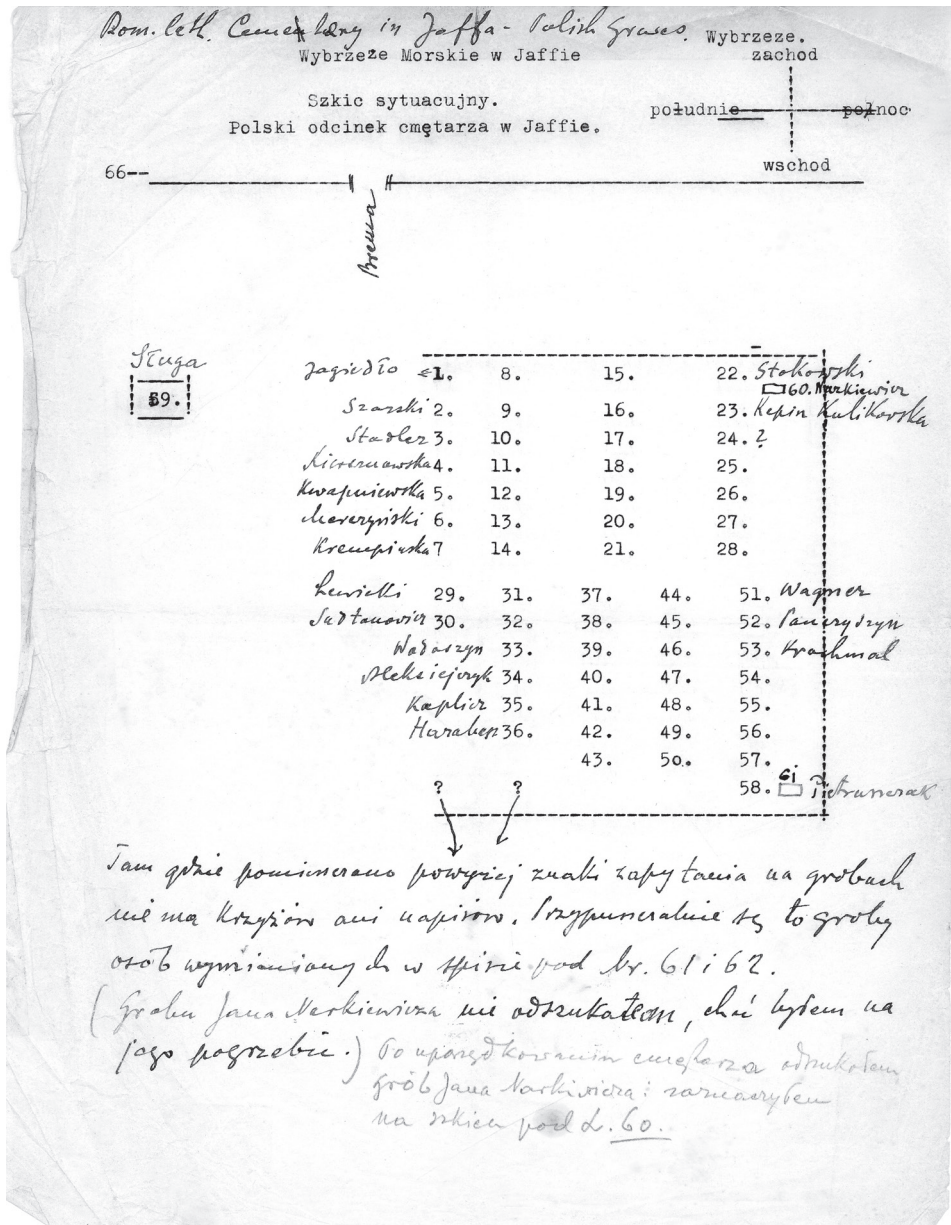 Rom. Cath. Cemetery in Jaffa - Polish Graves.
Wybrzeze.
Wybrzeze Morskie w Jaffie
zachod
Szkic sytuacujny.
południe północ
Polski odcinek cmętarza w Jaffie.
wschod
66--
Brema
Sługa
59.
Jagiełło 1. 8. 15. 22. Stokowski
60. Narkiewicz
Szarski 2. 9. 16. 23. Kepin Kulikowska
Stadler 3. 10. 17. 24. ?
4. 11. 18. 25.
Kwapniewska 5. 12. 19. 26.
6. 13. 20. 27.
Krempinska 7 14. 21. 28.
Lewicki 29. 31. 37. 44. 51. Wagner
Sułtanowicz 30. 32. 38. 45. 52. Panczyszyn
Wołoszyn 33. 39. 46. 53. Krochmal
Aleksiejczyk 34. 40. 47. 54.
Kaplicz 35. 41. 48. 55.
36. 42. 49. 56.
43. 50. 57.
61
? ? 58. Pietruszczak
Tam gdzie pomieszczono powyżej znaki zapytania na grobach
nie ma Krzyżów ani napisów. Przypuszczalnie są to groby
osób wymienionych w spisie pod Nr. 61 i 62.
(Grobu Jana Narkiewicza nie odszukałem, choć byłem na
jego pogrzebie.) Po uporządkowaniu cmętarza odszukałem
grób Jana Narkiewicza i zaznaczyłem
na szkicu pod L. 60.